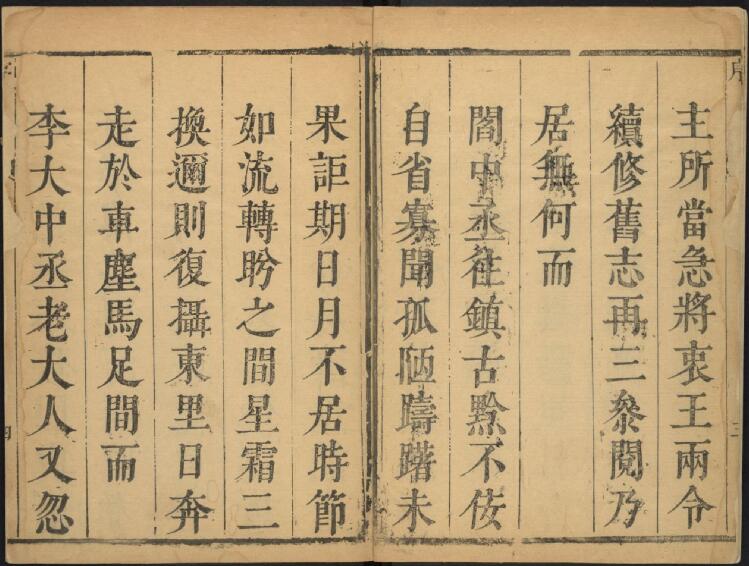 主所當急將衷王兩令
續修舊志再三叅閱乃
居無何而
閣中丞徃鎮古黔不佞
自省寡聞孤陋躊躇未
果詎期日月不居時節
如流轉盻之間星霜三
換邇則復攝東里日奔
走於車塵馬足間而
李大中丞老大人又忽
序
三
四